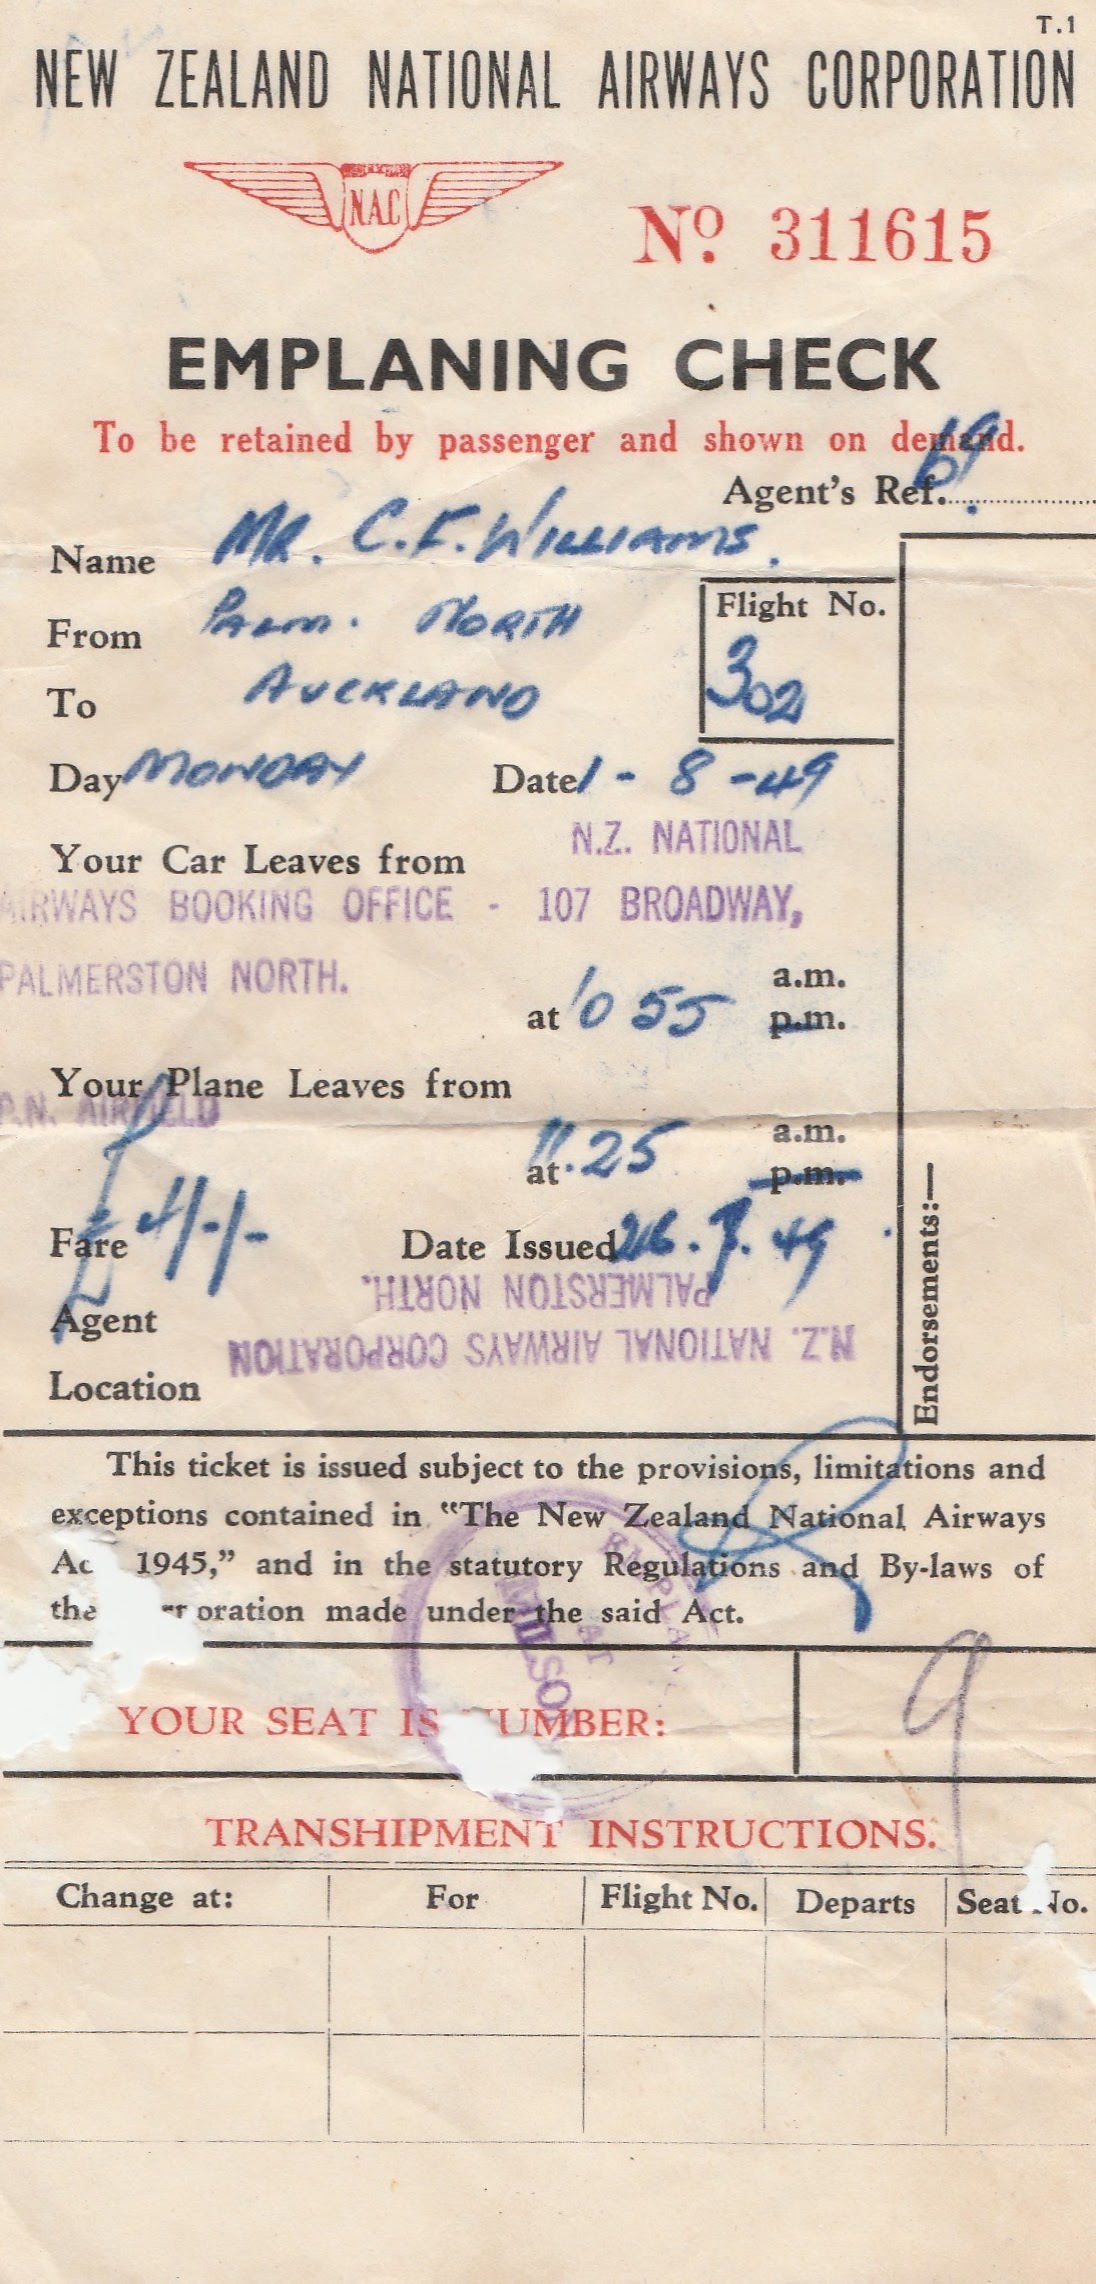 T.1
NEW ZEALAND NATIONAL AIRWAYS CORPORATION
N.A.C
No. 311615
EMPLANING CHECK
To be retained by passenger and shown on demand.
Agent's Ref. 69
Name MR. C.F. WILLIAMS.
From PALM. NORTH
Flight No.
302
To AUCKLAND
Day MONDAY Date 1-8-49
N.Z. NATIONAL
Your Car Leaves from
AIRWAYS BOOKING OFFICE - 107 BROADWAY,
PALMERSTON NORTH.
a.m.
at 10 55 p.m.
Your Plane Leaves from
P.N. AIRFIELD
a.m.
at 11.25 p.m.
Fare £4/-/- Date Issued 26.7.49
PALMERSTON NORTH.
Agent
N.Z. NATIONAL AIRWAYS CORPORATION
Location
Endorsements:—
This ticket is issued subject to the provisions, limitations and
exceptions contained in "The New Zealand National Airways
Ac 1945," and in the statutory Regulations and By-laws of
the oration made under the said Act.
AT
MILSON
YOUR SEAT IS NUMBER: 9
TRANSHIPMENT INSTRUCTIONS.
Change at: For Flight No. Departs Seat No.